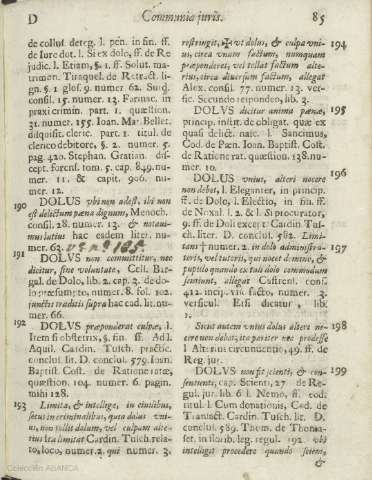 D Communia juris. 85
de collus. deteg. l. pen. in fin. ff.
de Iure dot. l. Si ex dolo, ff. de Re
judic. l. Etiam, §. 1. ff. Solut. ma
trimon. Tiraquel. de Retract. lig-
gn. §. 1. glos. 9. numer 62. Surd.
consil. 15. numer. 13. Farinac. in
praxi crimin. part. 1. quæstion.
31. numer. 155. Ioan. Mar. Bellet.
disquisit. cleric. part. 1. titul. de
clerico debitore, §. 2. numer. 5.
pag. 420. Stephan. Gratian. dis-
cept. forens. tom. 5. cap. 849. nu-
mer. 11. & capit. 906. nu-
mer. 12.
190 DOLUS ubi non adest, ibi non
est delictum pœna dignum, Menoch.
consil. 28. numer. 13. & notaui-
mus latius hac eadem liter. nu-
mer. 62.
191 DOLVS non committitur, nec
dicitur, sine voluntate, Cels. Bar-
gal. de Dolo, lib. 2. cap. 3. de do-
lo præsumpt. numer. 8. fol. 102.
junctis traditis supra hac eod. lit. nu-
mer. 66.
192 DOLVS præponderat culpæ, l.
Item si obstetrix, §. fin. ff. Ad l.
Aquil. Cardin. Tusch. practic.
conclus. lit. D. conclus. 579. Ioan.
Baptist. Cost. de Ratione ratæ,
quæstion. 104. numer. 6. pagin.
mihi 128.
193 Limita, & intellige, in civilibus,
secus in criminalibus, quia dolus vni-
us, non tollit dolum, vel culpam alte-
rius ita limitat Cardin. Tusch. rela-
to, loco, numer. 2. qui numer. 3.
restringit, ✠ vt dolus, & culpa vni- 194
us, circa vnum factum, nunquam
præponderet, vel tollat factum alte-
rius, circa diuersum factum, allegat
Alex. consil. 77. numer. 13. ver-
sic. Secundo respondeo, lib. 3.
DOLUS dicitur anima pœnæ, 195
princip. instit. de obligat. quæ ex
quasi delict. nasc. l. Sancimus,
Cod. de Pœn. Ioan. Baptist. Cost.
de Ratione rat. quæstion. 138. nu-
mer. 10.
DOLUS vnius, alteri nocere 196
non debet, l. Eleganter, in princip.
ff. de Dolo, l. Electio, in fin. ff.
de Noxal. l. 2. & l. Si procurator,
9. ff. de Doli except. Cardin. Tus-
ch. liter. D. conclus. 582. Limi-
tans † numer. 2. in dolo administra- 197
toris, vel tutoris, qui nocet domino, &
pupillo quando ex tali dolo commodum
sentiunt, allegat Castrens. cons.
412. incip. vis. facto, numer. 3.
versicul. Etsi dicatur, lib.
1.
Sicut autem vnius dolus altera no- 198
cere non debet, ita pariter nec prodesse
l Alterius circumuentio, 49. ff. de
Reg. jur.
DOLUS non fit scienti, & con- 199
sentienti, cap. Scienti, 27 de Re-
gul. jur. lib. 6. l. Nemo, ff. eod.
titul. l. Cum donationis, Cod. de
Transact. Cardin. Tusch. lit. D.
conclus. 589. Thom. de Thomas-
set. in florib. leg. regul. 192. vbi
intelligit procedere quando sciens,
&
Colección ABANCA